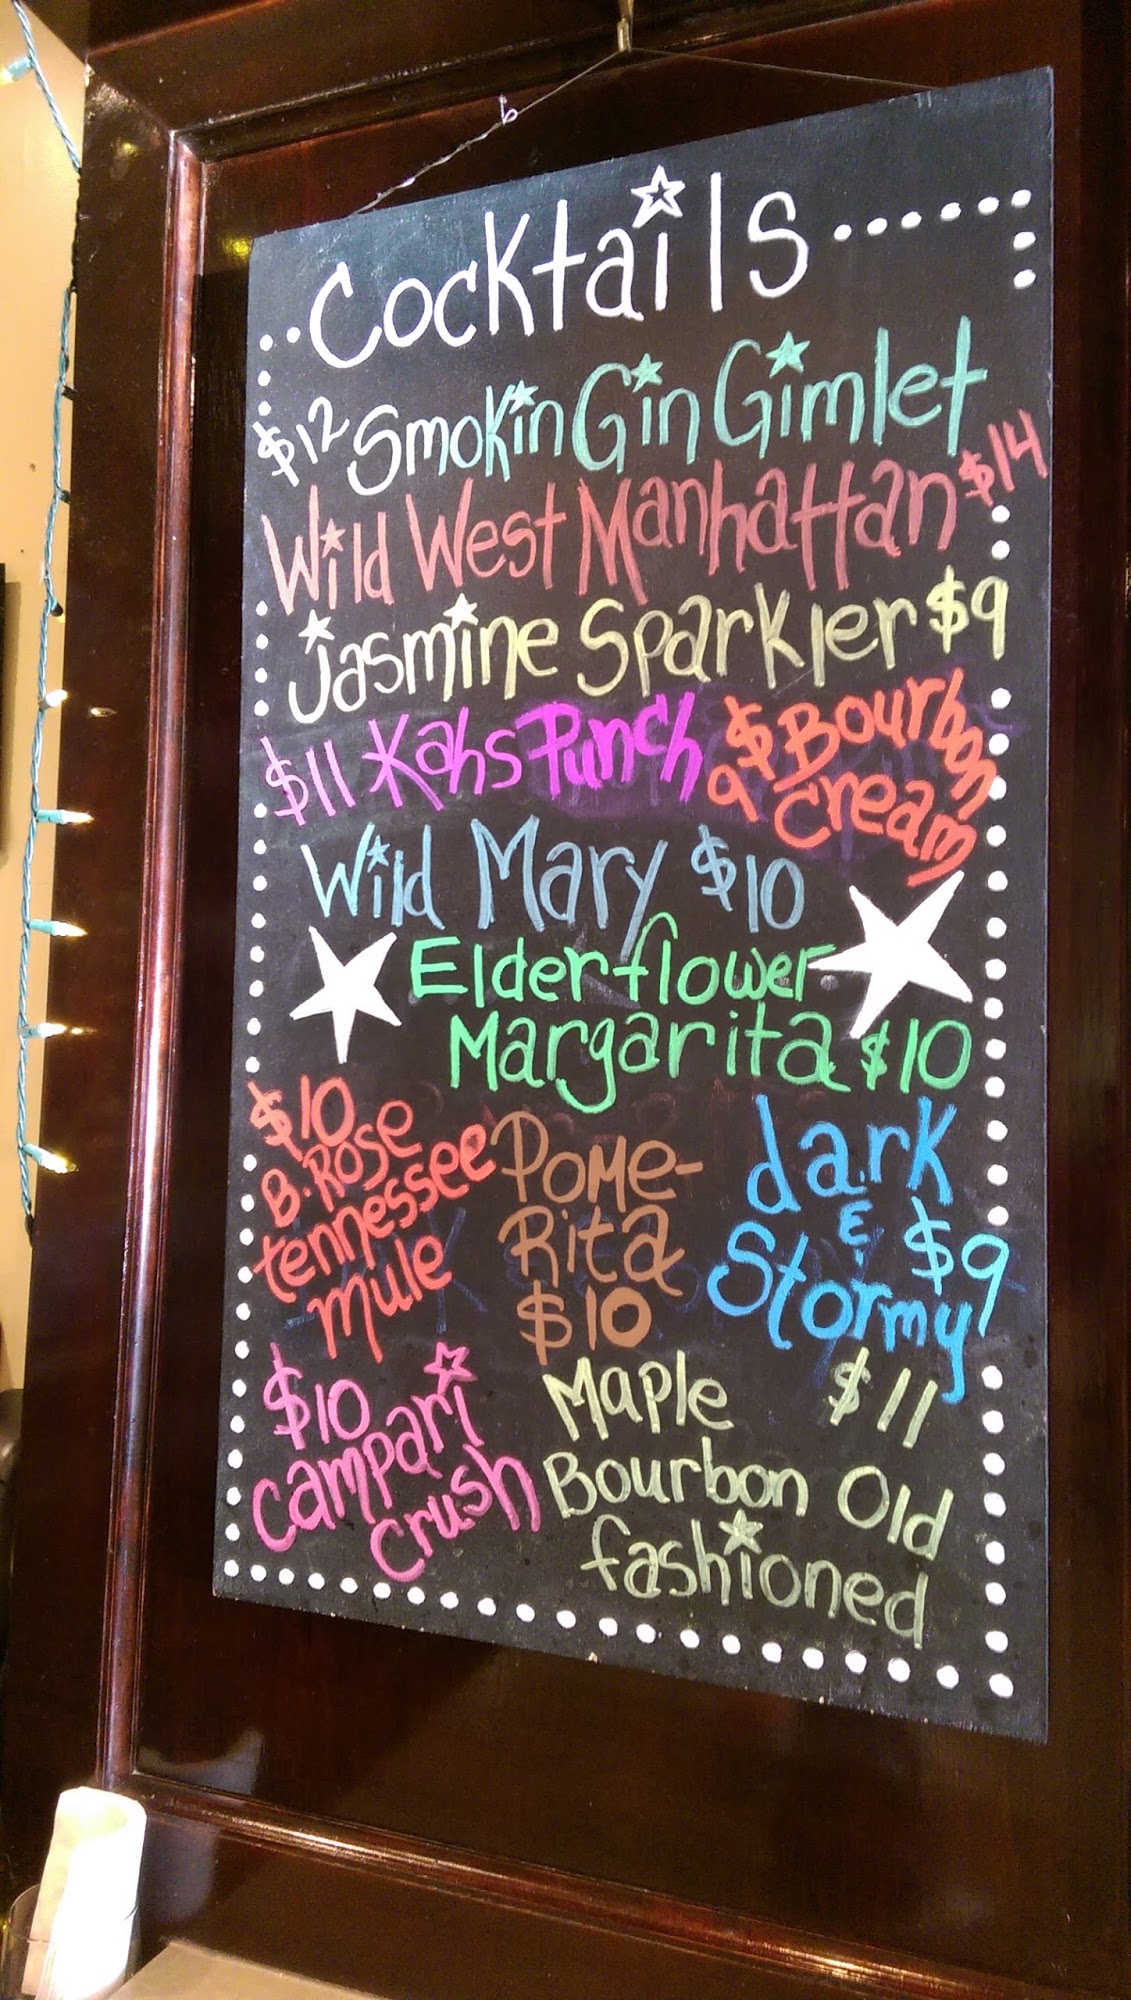 Cocktails
$12 Smokin Gin Gimlet
Wild West Manhattan $14
Jasmine Sparkler $9
$11 Kahs Punch
$9 Bourbon
Cream
Wild Mary $10
Elderflower
Margarita $10
$10
B. Rose
tennessee
mule
Pome-
Rita
$10
dark
&
Stormy
$9
$10
Campari
Crush
Maple $11
Bourbon Old
fashioned